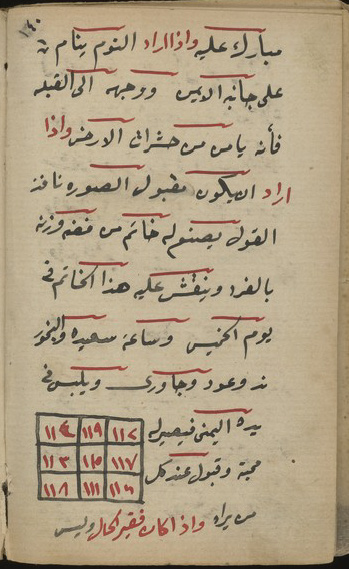 ١٤٠
مبارك عليه واذا اراد النوم ينام
على جانبه الايمن ووجهه الى القبله
فانه يامن من حشرات الارض واذا
اراد ان يكون مقبول الصوره نافذ
القول يصنع له خاتم من فضه وزنه
بالفرد وينقش عليه هذا الخاتم في
يوم الخميس وساعة سعيده والبخور
ند وعود وجاورى ويلبس في
يده اليمنى فيصير له
محبة وقبول عند كل
من يراه واذا كان فقير الحال وليس
١١٤ ١١٩ ١١٢
١١٣ ١١٥ ١١٧
١١٨ ١١١ ١١٦